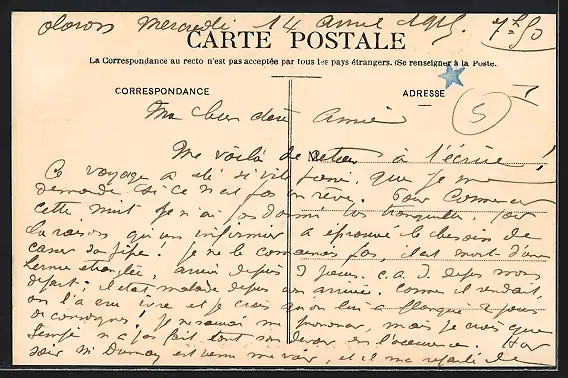 oloron Mercredi 14 avril 1915 7h 50
CARTE POSTALE
La Correspondance au recto n'est pas acceptée par tous les pays étrangers. (Se renseigner à la Poste.
CORRESPONDANCE
ADRESSE
5
Ma bien chère Amie
M
Me voilà de retour à l'écurie !
Ce voyage a été si vite fini, que je me
demande si ce n'est pas un rêve. Pour commencer
cette nuit je n'ai pas dormi très tranquille, par
la raison qu'un infirmier a éprouvé le besoin de
casser sa pipe ! je ne le connais pas, il est mort d'une
hernie étranglée, arrivé depuis 3 jours. c.a.d. depuis mon
départ. il était malade depuis son arrivée. comme il vendait,
on l'a cru ivre et je crois qu'on lui a flanqué jours
de consigne ! je ne saurai me prononcer, mais je crois que
n'a pas fait tout son devoir en l'occurence. Hier
soir M. est venu me voir, et il me reparlé de